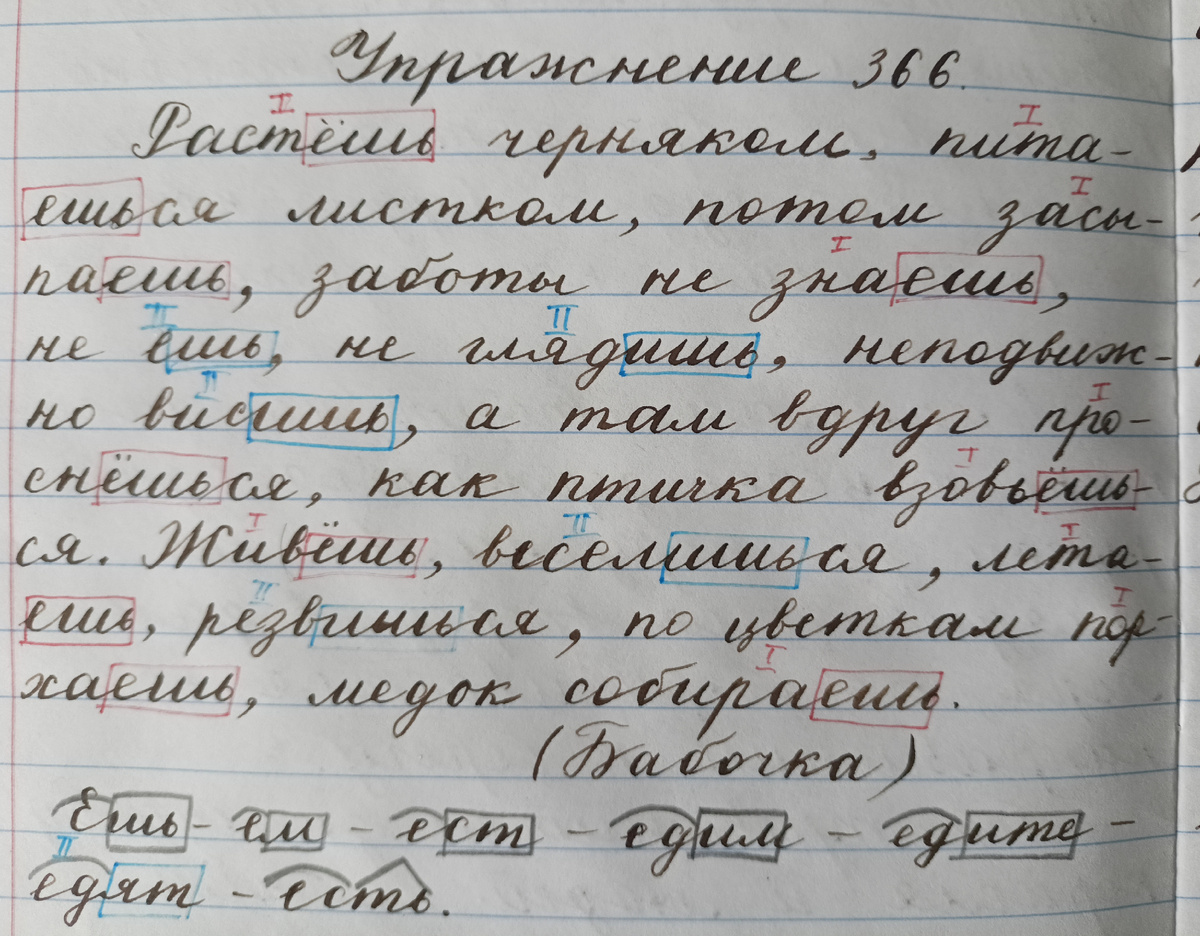 Упражнение 366.
Растёшь черняком, пита-
ешься листком, потом засы-
паешь, заботы не знаешь,
не ешь, не глядишь, неподвиж-
но висишь, а там вдруг про-
снёшься, как птичка взовьёшь-
ся. Живёшь, веселишься, лета-
ешь, резвишься, по цветкам пор-
хаешь, медок собираешь.
(Бабочка)
Ешь - ем - ест - едим - едите -
едят - есть.